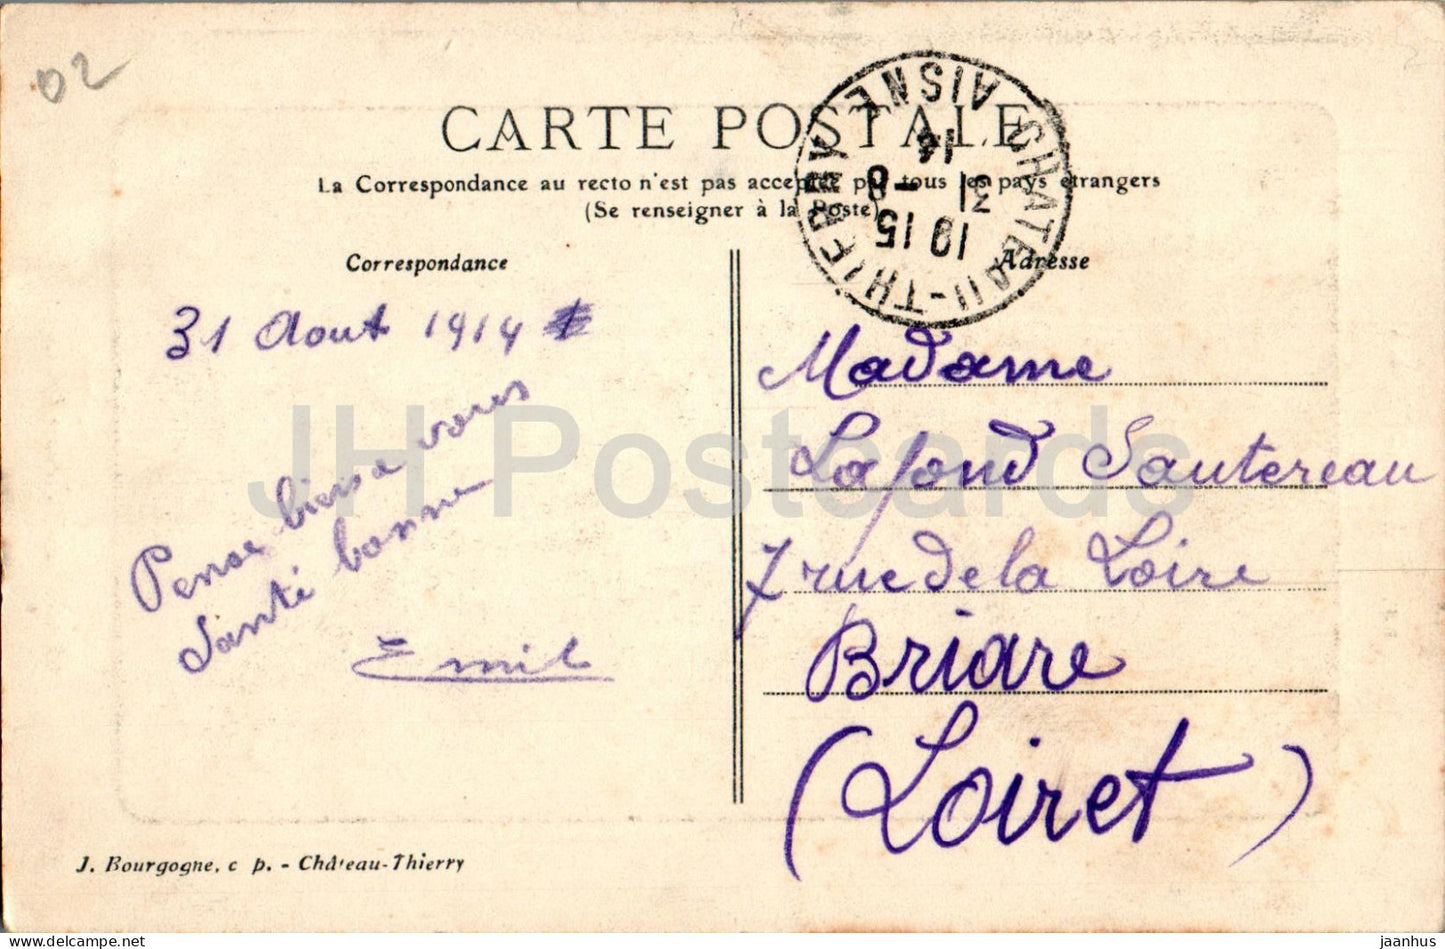 02
CARTE POSTALE
La Correspondance au recto n'est pas acceptée par tous les pays étrangers
(Se renseigner à la Poste)
CHATEAU-THIERRY
AISNE
1915
31 - 8
14
Correspondance
31 Aout 1914
Pense bien a vous
Santé bonne
Emil
Adresse
Madame
Lafond Sautereau
7 rue de la Loire
Briare
(Loiret)
J. Bourgogne, c p. - Château-Thierry
JH Postcards
www.delcampe.net
jaanhus